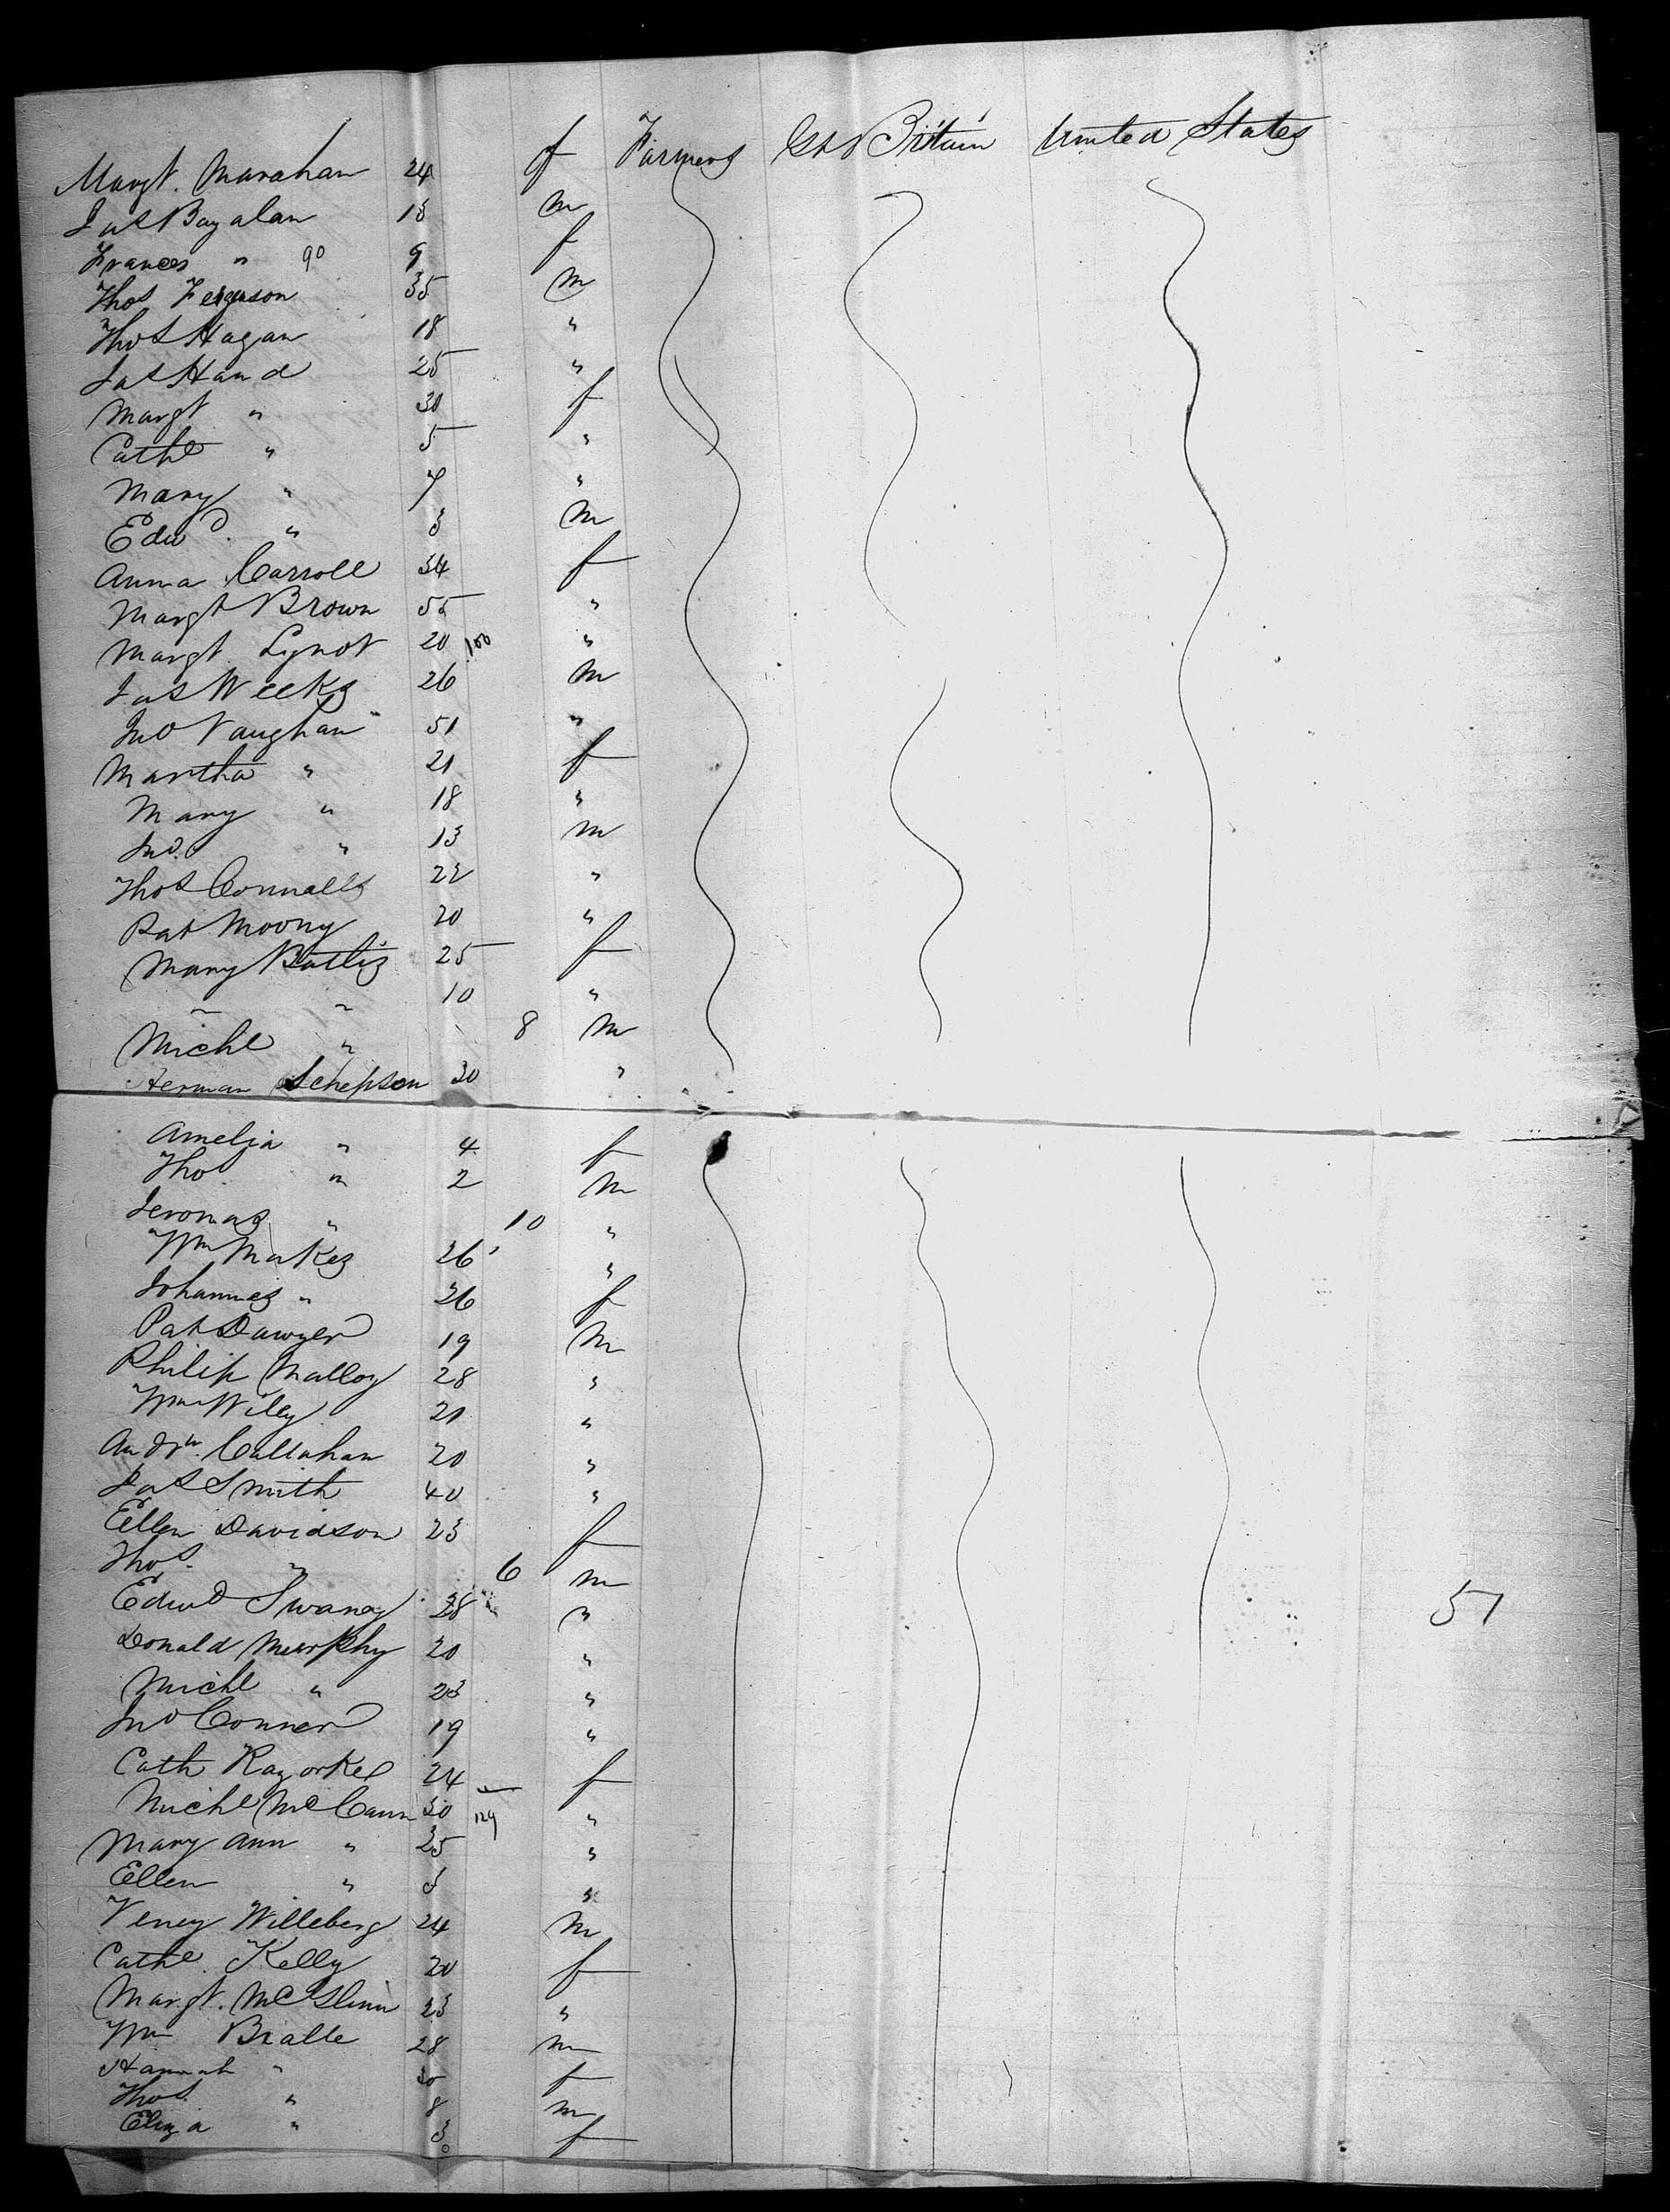 Margt. Marahan 24 f Farmers Gt Britain United States
Jas Bagalan 13 m
Frances " 90 9 f
Thos Ferguson 35 m
Thos Hagan 18 "
Jas Hand 25 "
Margt " 30 f
Cathe " 5 "
Mary " 7 "
Edwd. " 3 m
Anna Carroll 34 f
Margt Brown 55 "
Margt Lynot 20 100 "
Jas Weeks 26 m
Jno Vaughan 51 "
Martha " 21 f
Mary " 18 "
Jno. " 13 m
Thos Connally 22 "
Pat Moony 20 "
Mary Battis 25 f
" " 10 "
Michl " 8 m
Herman Schepson 30 "
Amelia " 4 f
Tho " 2 m
Jeromas " 10 "
Wm Makes 26 "
Johannes " 26 f
Pat Dawyer 19 m
Philip Malloy 28 "
Wm Wiley 21 "
Andw. Callahan 20 "
Jas Smith 40 "
Ellen Davidson 23 f
Thos. " 6 m
Edwd Swany 28 "
Donald Murphy 20 "
Michl " 23 "
Jno Conner 19 "
Cath Razorkel 24 f
Michl McCann 30 129 "
Mary Ann " 25 "
Ellen " 3 "
Veney Willeberg 24 m
Cathe. Kelly 20 f
Margt. McGlinn 23 "
Wm Bialle 28 m
Hannah " 30 f
Thos. " 8 m
Eliza " 3 f
51